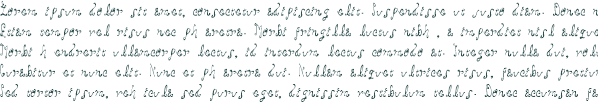 Lorem ipsum dolor sit amet, consectetur adipiscing elit. Suspendisse ut justo diam. Donec n
Etiam semper vel risus nec ph aretra. Morbi fringilla luctus nibh , a imperdiet nisl aliqua
Morbi h endrerit ullamcorper lectus, id interdum lectus commodo at. Integer nulla dui, veh
Curabitur et nunc elit. Nunc et ph aretra dui. Nullam aliquet ultrices risus, faucibus pretiu
Sed tortor ipsum, veh icula sed purus eget, dignissim vestibulum tellus. Donec accumsan fa